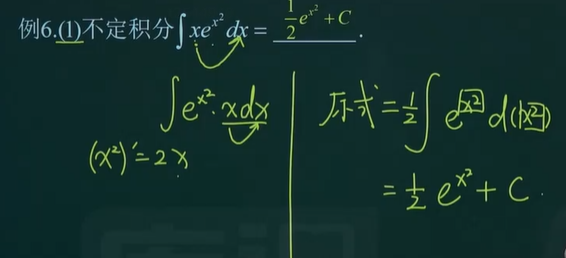 例6.(1)不定积分∫xe^{x²}dx = ½e^{x²}+C .
∫e^{x²}·xdx
(x²)'=2x
原式=½∫e^{x²}d(x²)
=½e^{x²}+C.